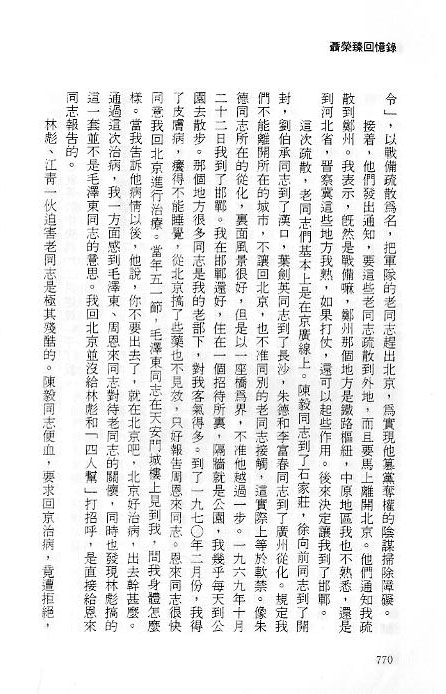 聶榮臻回憶錄
令」，以戰備疏散爲名，把軍隊的老同志趕出北京，爲實現他篡黨奪權的陰謀掃除障礙。
接着，他們發出通知，要這些老同志疏散到外地，而且要馬上離開北京。他們通知我疏
散到鄭州。我表示，旣然是戰備嘛，鄭州那個地方是鐵路樞紐，中原地區我也不熟悉，還是
到河北省，晉察冀這些地方我熟，如果打仗，還可以起些作用。後來決定讓我到了邯鄲。
這次疏散，老同志們基本上是在京廣線上。陳毅同志到了石家莊，徐向前同志到了開
封，劉伯承同志到了漢口，葉劍英同志到了長沙，朱德和李富春同志到了廣州從化。規定我
們不能離開所在的城市，不讓回北京，也不准同別的老同志接觸，這實際上等於軟禁。像朱
德同志所在的從化，裏面風景很好，但是以一座橋爲界，不准他越過一步。一九六九年十月
二十二日我到了邯鄲。我在邯鄲還好，住在一個招待所裏，隔牆就是公園，我幾乎每天到公
園去散步。那個地方很多同志是我的老部下，對我客氣得多。到了一九七〇年二月份，我得
了皮膚病，癢得不能睡覺，從北京搞了些藥也不見效，只好報告周恩來同志。恩來同志很快
同意我回北京進行治療。當年五一節，毛澤東同志在天安門城樓上見到我，問我身體怎麼
樣。當我告訴他病情以後，他說，你不要出去了，就在北京吧，北京好治病，出去幹甚麼。
通過這次治病，我一方面感到毛澤東、周恩來同志對待老同志的關懷，同時也發現林彪搞的
這一套並不是毛澤東同志的意思。我回北京並沒給林彪和「四人幫」打招呼，是直接給恩來
同志報告的。
林彪、江青一伙迫害老同志是極其殘酷的。陳毅同志便血，要求回京治病，竟遭拒絕，
770